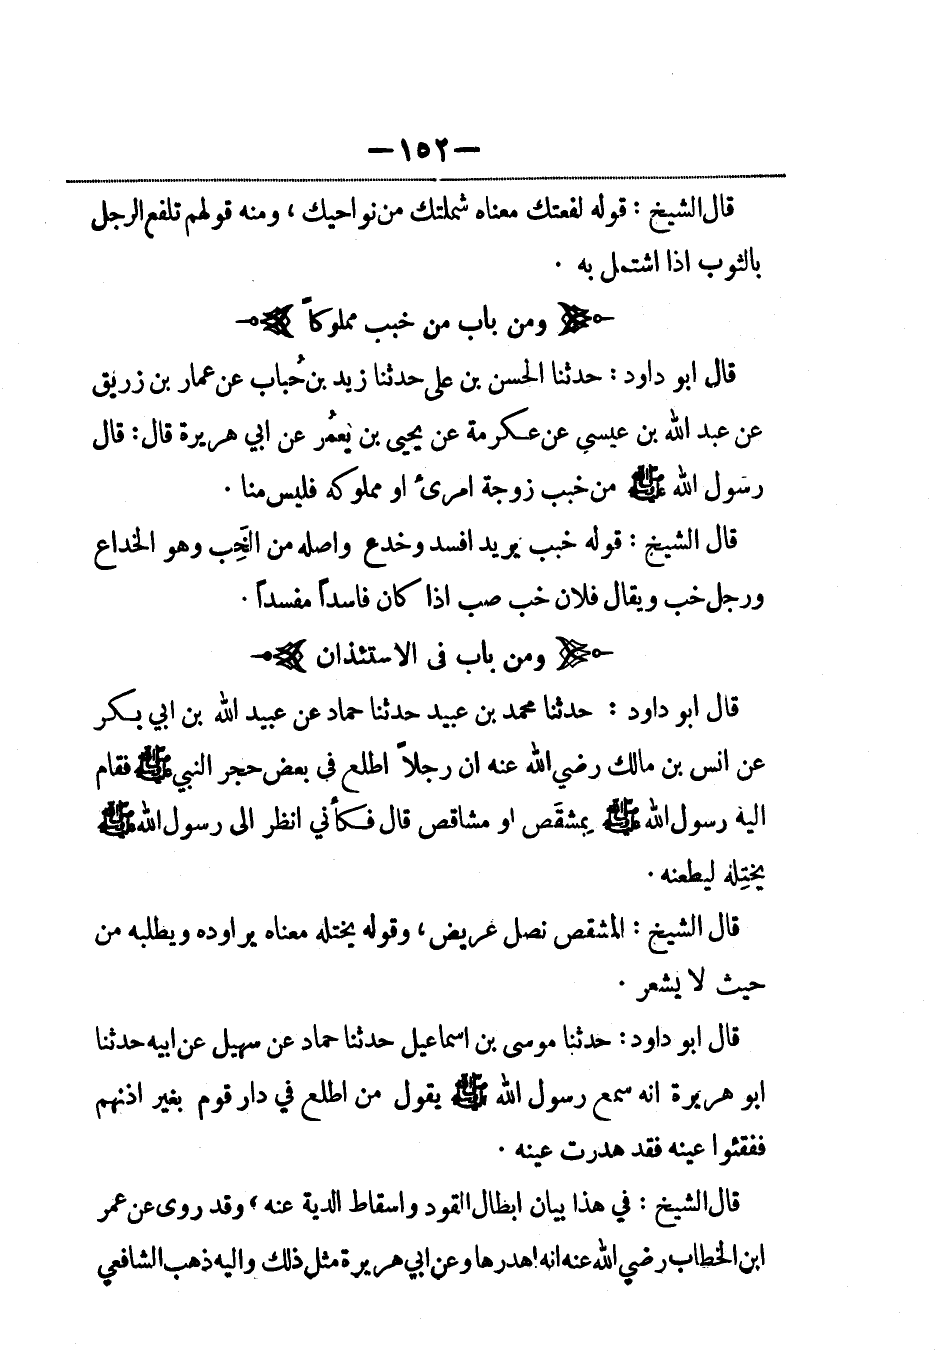 —١٥٢—
قال الشيخ : قوله لفعتك معناه شملتك من نواحيك ، ومنه قولهم تلفع الرجل
بالثوب اذا اشتمل به .
ومن باب من خبب مملوكاً
قال ابو داود : حدثنا الحسن بن علي حدثنا زيد بن حُباب عن عمار بن زريق
عن عبد الله بن عيسي عن عكرمة عن يحيى بن يَعمُر عن ابي هريرة قال : قال
رسول الله ﷺ من خبب زوجة امرئ او مملوكه فليس منا .
قال الشيخ : قوله خبب يريد افسد وخدع واصله من الخَِب وهو الخداع
ورجل خب ويقال فلان خب صب اذا كان فاسداً مفسداً .
ومن باب فى الاستئذان
قال ابو داود : حدثنا محمد بن عبيد حدثنا حماد عن عبيد الله بن ابي بكر
عن انس بن مالك رضي الله عنه ان رجلاً اطلع في بعض حجر النبي ﷺ فقام
اليه رسول الله ﷺ بِمشقَص او مشاقص قال فكأني انظر الى رسول الله ﷺ
يختِله ليطعنه .
قال الشيخ : المشقص نصل عريض ، وقوله يختله معناه يراوده ويطلبه من
حيث لا يشعر .
قال ابو داود : حدثنا موسى بن اسماعيل حدثنا حماد عن سهيل عن ابيه حدثنا
ابو هريرة انه سمع رسول الله ﷺ يقول من اطلع في دار قوم بغير اذنهم
ففقئوا عينه فقد هدرت عينه .
قال الشيخ : في هذا بيان ابطال القود واسقاط الدية عنه ، وقد روى عن عمر
ابن الخطاب رضي الله عنه انه اهدرها وعن ابي هريرة مثل ذلك واليه ذهب الشافعي